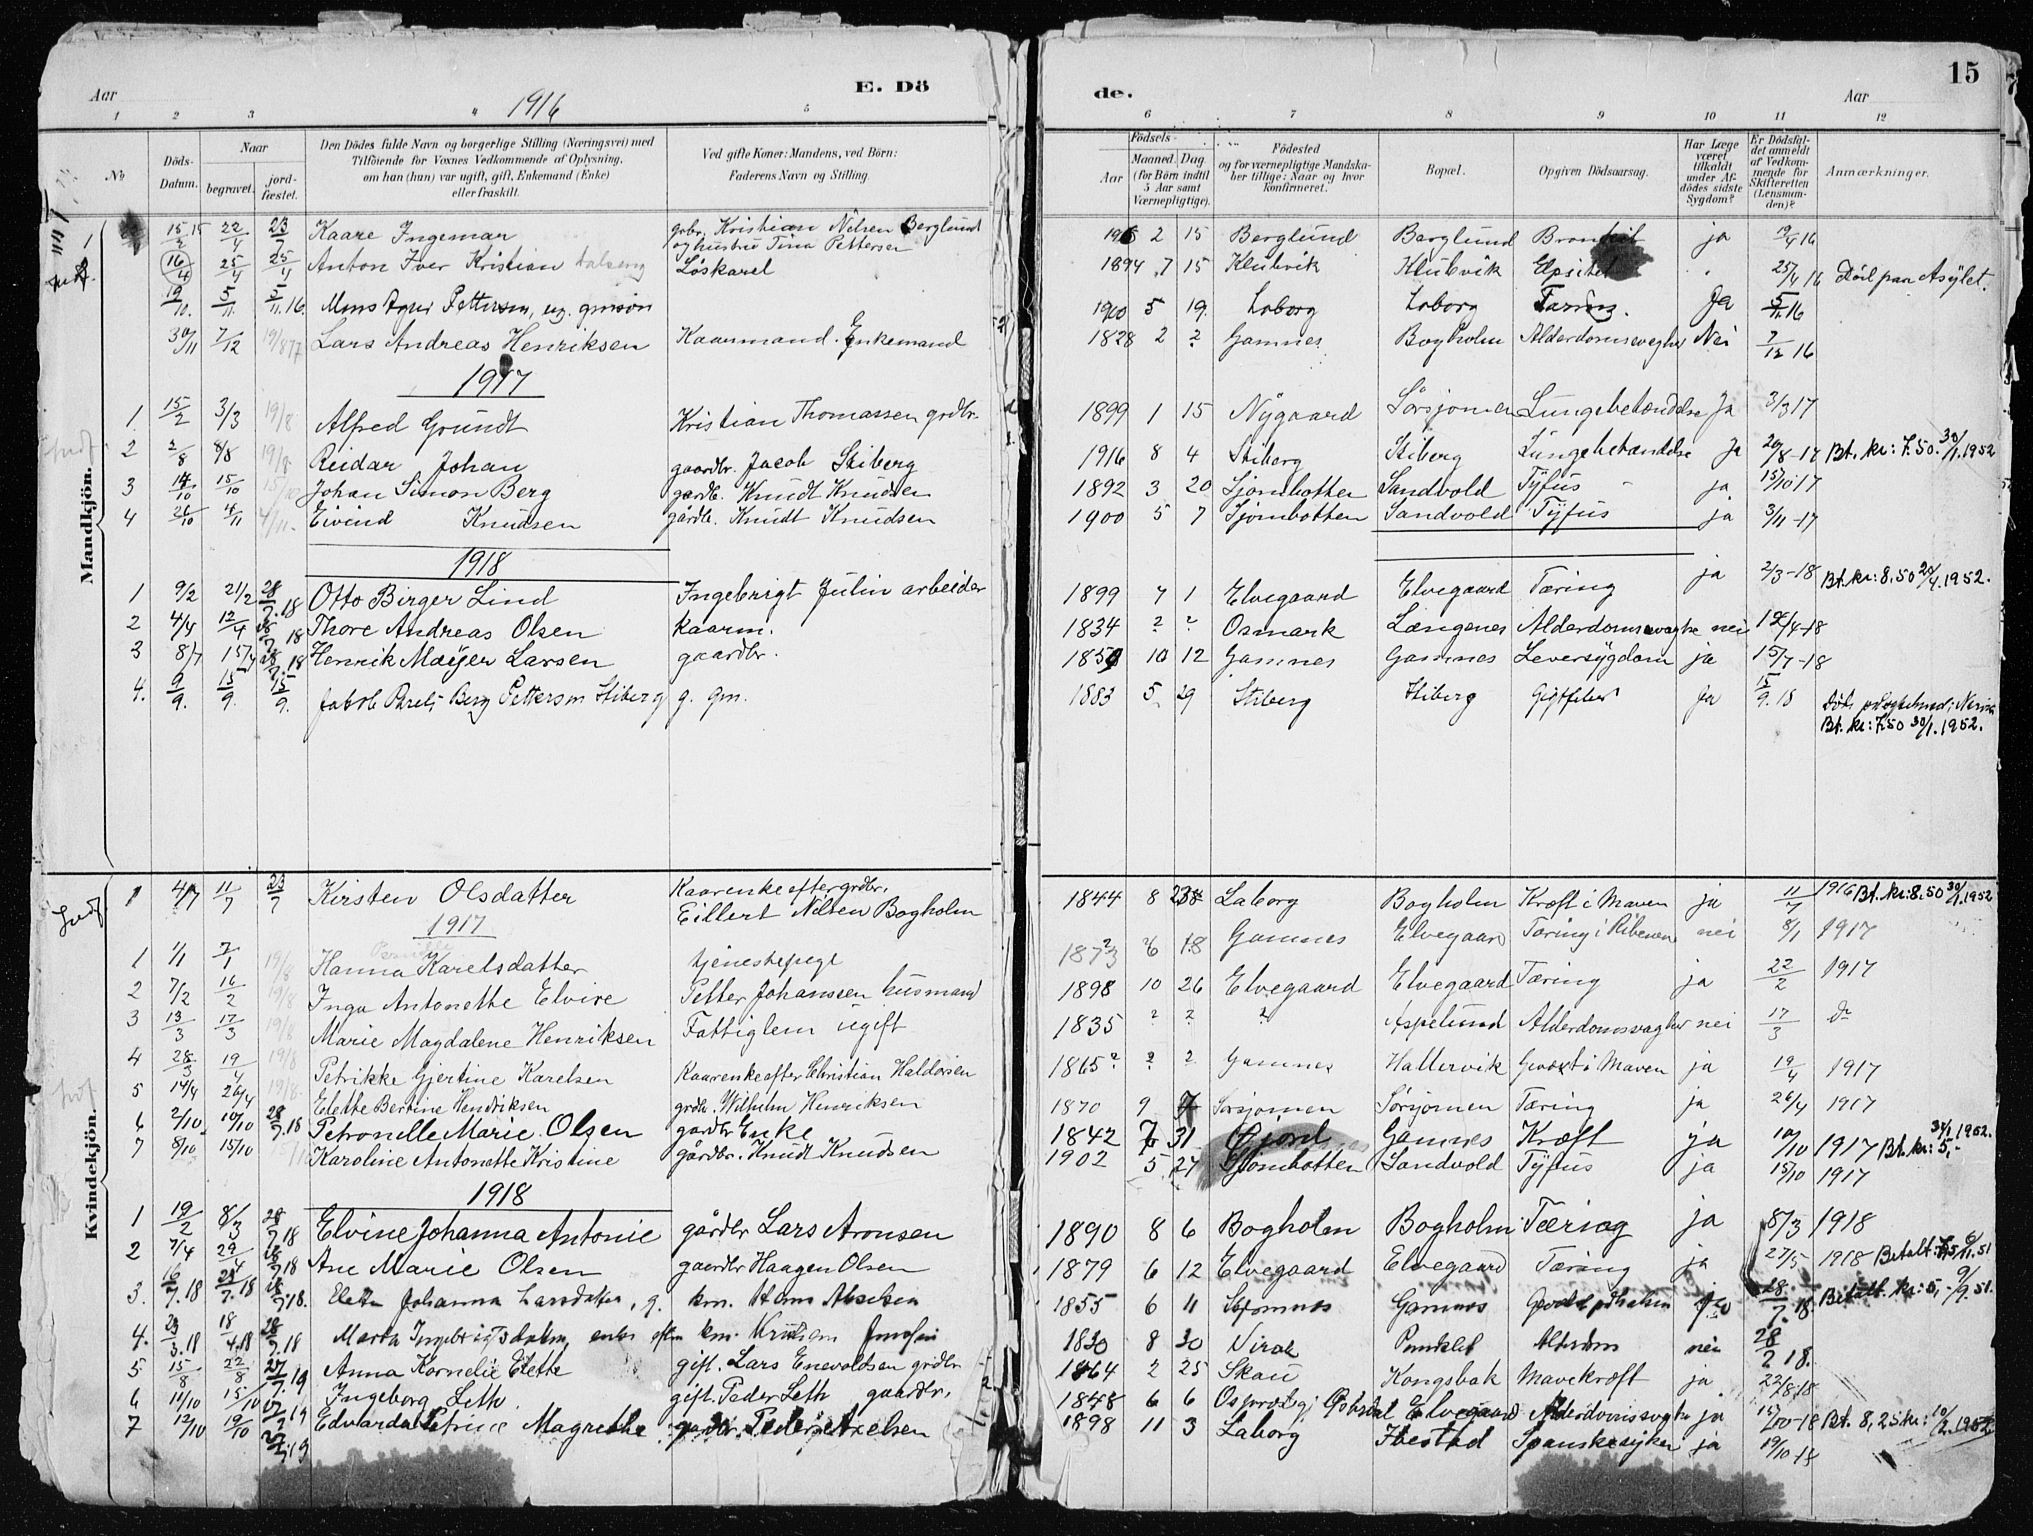 15
Aar 1916 E. Dö de. Aar
1 2 3 4 5 6 7 8 9 10 11 12
No Döds-Datum. Naar begravet. jord-fæstet. Den Dödes fulde Navn og borgerlige Stilling (Næringsvei) med Tilföiende for Voxnes Vedkommende af Oplysning, om han (hun) var ugift, gift, Enkemand (Enke) eller fraskilt. Ved gifte Koner: Mandens, ved Börn: Faderens Navn og Stilling. Födsels- Aar Maaned Dag (for Börn indtil 5 Aar samt Værnepligtige). Födested og for værnepligtige Mandskaber tillige: Naar og hvor konfirmeret. Bopæl. Opgiven Dödsaarsag. Har Læge været tilkaldt under Afdödes sidste Sygdom? Er Dödsfaldet anmeldt af Vedkommende for Skifteretten (Lensmanden)? Anmærkninger.
Mandkjön.
1 15/2 22/4 23/7 Kaare Ingemar gbr. Kristian Nilsen Berglund og hustru Tina Pettersen 2 15 Berglund Berglund ja 19/4 16
16/4 25/4 25/4 Anton Iver Kristian Løskarel 1894 7 15 Klubvik Klubvik 25/4 16 Död paa Asylet.
19/10. 5/11. 5/11.16. Pettersen, ug. gmsøn 1900 5 19. Laborg Laborg Tæring. Ja 5/11.16
30/11 7/12 19/8 17 Lars Andreas Henriksen Kaarmand. Enkemand 1828 2 ? Gamnes Bogholm Alderdomsvaghed Nei 7/12 16
1917
1 15/2 3/3 19/8 Alfred Grundt Kristian Thomassen grdbr. 1899 1 15 Nygaard Sørsjomen Lungebetændelse Ja 3/3 17
2 2/8 8/8 19/8 Reidar Johan gaardbr. Jacob Stiberg 1916 8 4 Stiberg Stiberg Lungebetændelse Ja 20/8-17 Bt. kr: 7.50. 30/1.1952
3 14/10 15/10 15/10 Johan Simon Berg gårdb. Knudt Knudsen 1892 3 20 Sjombotten Sandvold Tyfus ja 15/10 17
4 26/10 4/11 4/11. Eivind Knudsen gårdb. Knudt Knudsen 1900 5 7 Sjombotten Sandvold Tyfus ja 3/11-17
1918
1 9/2 21/2 28/7.18 Otto Birger Lind Ingebrigt Julin arbeider 1899 7 1 Elvegaard Elvegaard Tæring ja 2/3-18 Bt. kr: 8.50 1952.
2 4/4 12/4 28/7 18 Thore Andreas Olsen kaarm. 1834 ? ? Osmark Længenes Alderdomsvaghe nei 12/4-18
3 8/7 15/7 28/7.18 Henrik Mæijer Larsen gaardbr. 10 12 Gamnes Gamnes Leversygdom ja 15/7-18
4. 9/9. 15/9. 15/9. Jakob Berg Pettersen Stiberg g. gm. 1883 5 29 Stiberg Stiberg Gigtfeber Ja 15/9.18
Bt. kr: 7.50 30/1.1952.
Kvindekjön.
1 4/7 11/7 23/7 Kirsten Olsdatter Kaarenke efter grdbr. Eillert Nilsen Bogholm 1844 8 Laborg Bogholm Kræft i Maven ja 11/7 1916 Bt. kr: 8.50 30/1.1952
1917
1 1/1 7/1 19/8 Hanna Karelsdatter tjenestepige 18 Gamnes Elvegaard Tæring i Ribenen nei 8/1 1917
2 7/2 16/2 19/8 Inga Antonette Elvire Petter Johansen husmand 1898 10 26 Elvegaard Elvegaard Tæring ja 22/2 1917
3 13/3 17/3 19/8 Marie Magdalene Henriksen Fattiglem ugift 1835 ? ? ? Aspelund Alderdomsvaghed nei 17/3 do
4 28/3 19/4 19/8 Petrikke Gjertine Karelsen Kaarenke efter Christian Haldorsen 1865? ? ? Gamnes Hallervik Gevæxt i Maven ja 19/4 1917
5 14/4 26/4 19/8. Elette Bertine Hendriksen grdb. Wilhelm Henriksen 1870 9 Sørsjomen Sørsjomen Tæring ja 26/4 1917
6 2/10 10/10 28/7.18 Petronelle Marie Olsen gaardbr Enke 1842 7 31 Gjord Gamnes Kræft ja 10/10 1917 Bt. kr: 5,- 1952.
7 8/10 15/10 Karoline Antonette Kristine gårdbr. Knudt Knudsen 1902 5 27 Sjombotten Sandvold Tyfus ja 15/10 1917
1918
1 19/2 8/3 28/7 18 Elvine Johanna Antonie gårdbr Lars Aronsen 1890 8 6 Bogholm Bogholm Tæring ja 8/3 1918
2 7/4 29/4 28/7 18 Ane Marie Olsen gaardbr Haagen Olsen 1879 6 12 Elvegaard Elvegaard Tæring ja 27/5 1918 Betalt 51
3. 16/7.18 28/7.18 28/7.18. Johanna Larsdatter, g. km. Hans Akselsen 1855 6 11 Skjomnes Gamnes 28/7.18 Betalt kr: 5,- 51.
4. 23/3.18 18/4.18 28/7.18 Marta enke efter km. 1830 8 30 Alderdom nei 28/7 18.
5 15/8 22/8 27/7.19 Anna Kornelie Elette gift. Lars Enevoldsen grdbr 1864 2 25 Skau Kongsbak Mavekræft ja 22/8.18
6 11/10 15/10 27/7 19 Ingeborg Leth gift. Peder Leth gaardbr. 1848 6 6 Elvegaard Alderdomssvaghe ja 15/10-18 Bt. 8,25 kr: 10/2.1952
7 12/10 19/10 27/7.19 Edvarda Petrine Magrethe gårdbr. Peder Axelsen 1898 11 3 Laborg Ibestad Spanskesyken ja 19/10-18